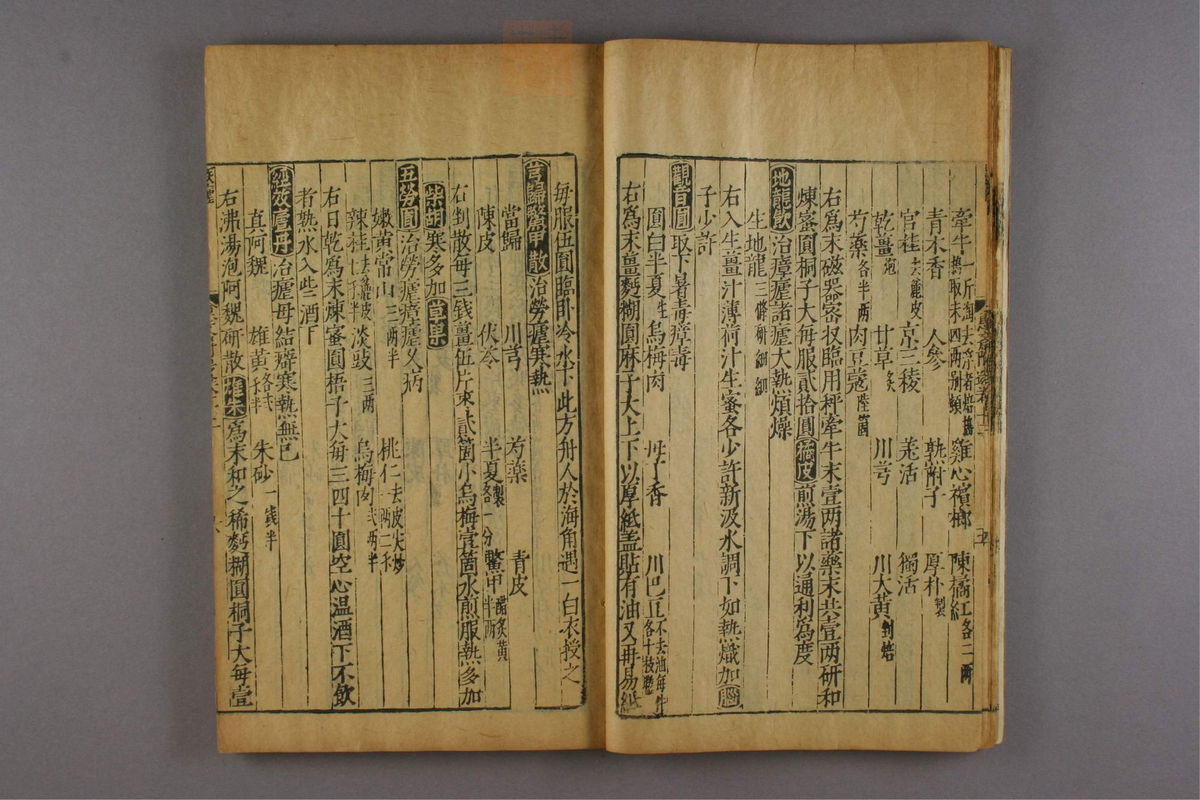 牽牛一斤淘去浮者焙搗取末四兩別頓 雞心檳榔 陳橘紅各二兩
青木香 人參 熟附子 厚朴製
官桂去麄皮 京三稜 羌活 獨活
乾薑炮 甘草炙 川芎 川大黃剉焙
芍藥各半兩 肉豆蔻陸箇
右爲末磁器密收臨用秤牽牛末壹兩諸藥末共壹兩研和
煉蜜圓桐子大每服貳拾圓橘皮煎湯下以通利爲度
地龍飲治瘴瘧諸瘧大熱煩燥
生地龍三條研細
右入生薑汁薄荷汁生蜜各少許新汲水調下如熱熾加腦
子少許
觀音圓取下暑毒瘴毒
圓白半夏生 烏梅肉 母丁香 川巴豆不去油每件各十枚
右爲末薑麪糊圓麻子大上下以厚紙盖貼有油又再易紙
每服伍圓臨卧冷水下此方舟人於海角遇一白衣授之
芎歸鱉甲散治勞瘧寒熱
當歸 川芎 芍藥 青皮
陳皮 茯苓 半夏製各一分 鱉甲醋炙黃半兩
右剉散每三錢薑伍片棗貳箇小烏梅壹箇水煎服熱多加
柴胡寒多加草菓
五勞圓治勞瘧瘴瘧久病
嫩黃常山三兩半 桃仁去皮尖炒一兩二分
辣桂去麄皮 淡豉三兩 烏梅肉二兩半
右日乾爲末煉蜜圓梧子大每三四十圓空心溫酒下不飲
者熱水入些酒下
經效瘧丹治瘧母結癖寒熱無已
真阿魏 雄黃各弍分半 朱砂一錢半
右沸湯泡阿魏研散雄朱爲末和之稀麪糊圓桐子大每壹